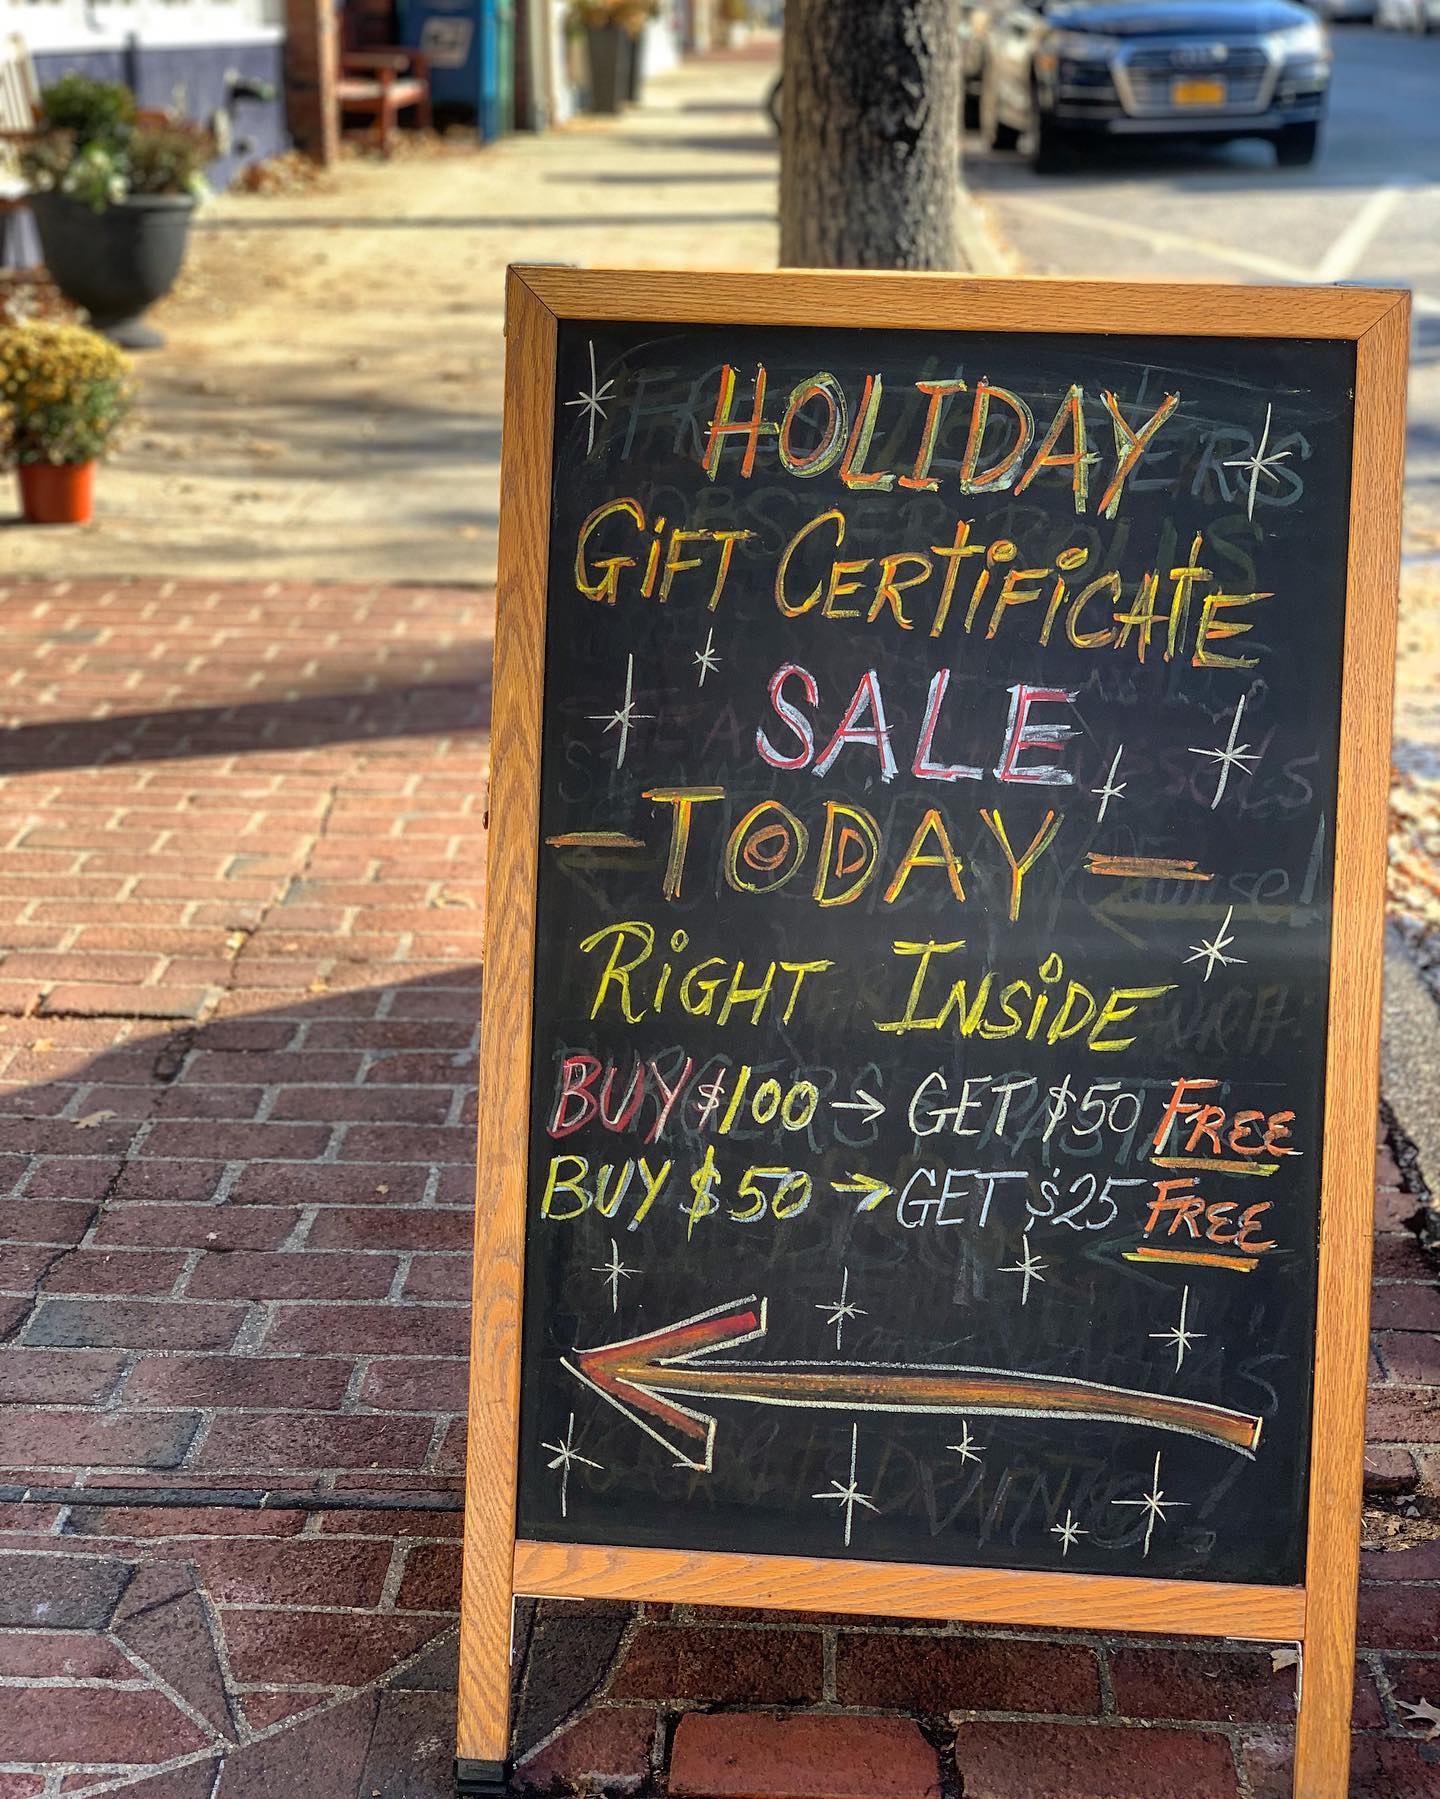 HOLIDAY
GiFT CERTiFiCATE
SALE
- TODAY -
RiGHT INSiDE
BUY $100 → GET $50 FREE
BUY $50 → GET $25 FREE